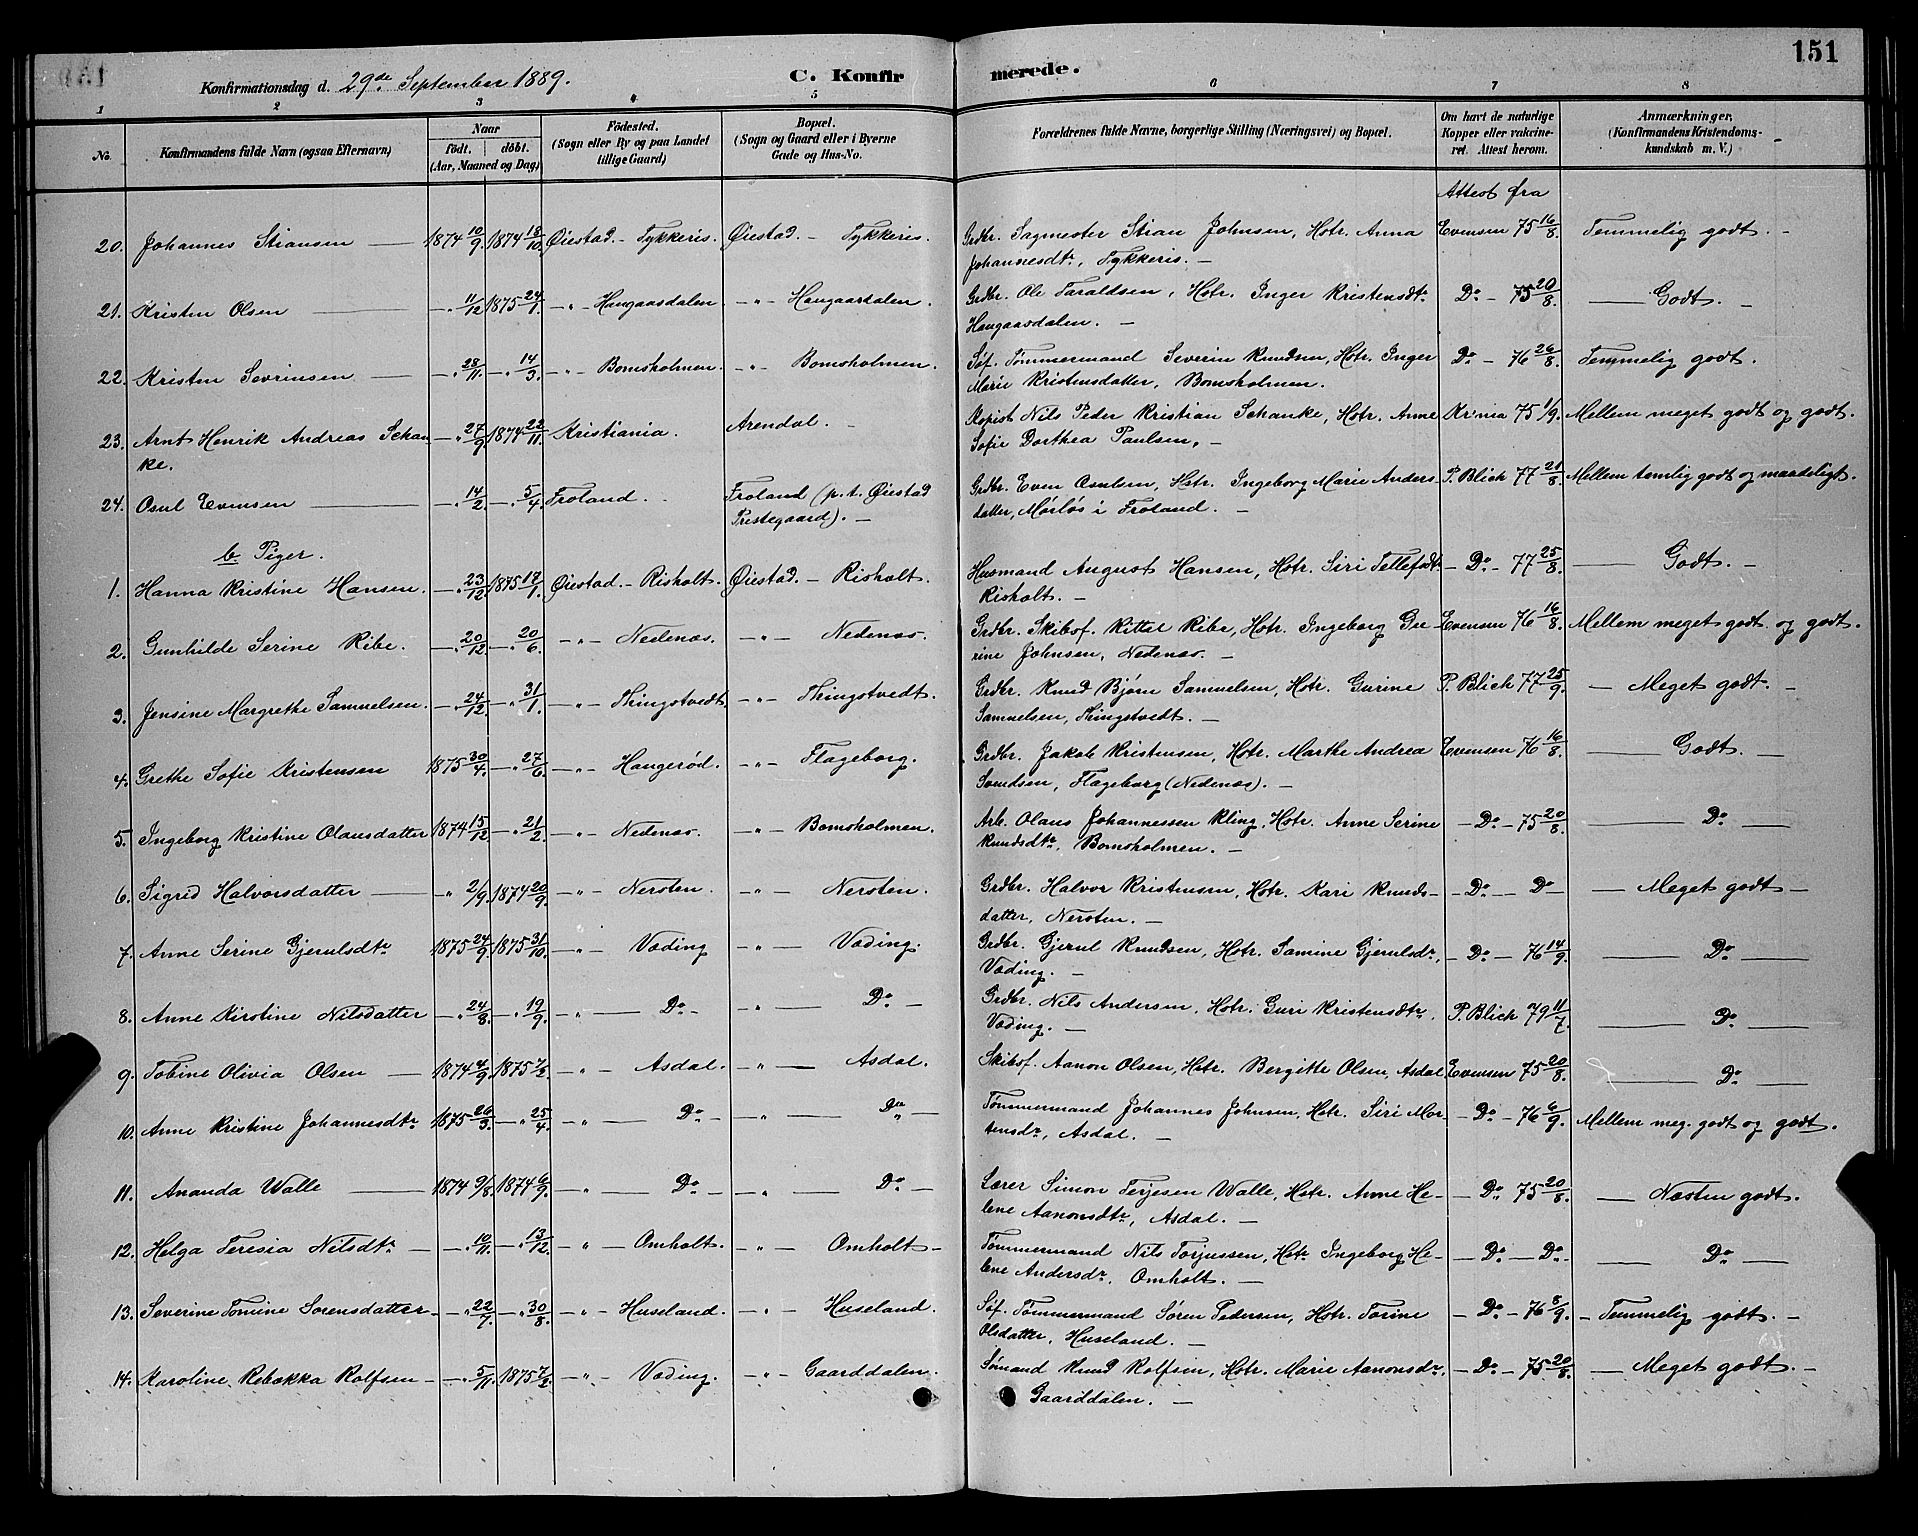 151
Konfirmationsdag d. 29de September 1889.
C. Konfirmerede.
1 2 3 4 5 6 7 8
No. Konfirmandens fulde Navn (ogsaa Efternavn) Naar födt. döbt. (Aar, Maaned og Dag) Födested. (Sogn eller By og paa Landet tillige Gaard) Bopæl. (Sogn og Gaard eller i Byerne Gade og Hus-No. Forældrenes fulde Navne, borgerlige Stilling (Næringsvei) og Bopæl. Om havt de naturlige Kopper eller vakcineret. Attest herom. Anmærkninger, (Konfirmandens Kristendomskundskab m. V.)
Attest fra
20. Johannes Stiansen — 1874 10/9. 1874 18/10. Øiestad. - Tykkeris. Øiestad. - Tykkeris. Grdbr. Sagmester Stian Johnsen, Hstr. Anna Evensen 75 16/8. Temmelig godt. -
Johannesdtr, Tykkeris. -
21. Kristen Olsen — -„- 11/12 1875 24/1. -„- Haugaasdalen -„- Haugaasdalen. Grdbr. Ole Taraldsen, Hstr. Inger Kristensdtr Do - 75 20/8. — Godt. -
Haugaasdalen. -
22. Kristen Sevrinsen — -„- 28/11. -„- 14/3. -„- Bomsholmen. -„- Bomsholmen. Søf. Tømmermand Severin Knudsen, Hstr. Inger Do - 76 26/8. Temmelig godt.
Marie Kristensdatter, Bomsholmen.
23. Arnt Henrik Andreas Schan -„- 27/9. 1874 22/11. Kristiania. Arendal. - Kopist Nils Peder Kristian Schanke, Hstr. Anne Kr'nia 75 1/9. Mellem meget godt og godt.
ke. Sofie Dorthea Paulsen. -
24. Osul Evensen — -„- 14/2. -„- 5/4. Froland. Froland (p.t. Øiestad Grdbr. Even Osulsen, Hstr. Ingeborg Marie Anders P. Blich 77 21/8. Mellem temlig godt og maadeligt.
Prestegaard). - datter, Mørløs i Froland. -
b Piger.
1. Hanna Kristine Hansen. -„- 23/12. 1875 17/1. Øiestad. - Risholt. Øiestad. - Risholt. Husmand August Hansen, Hstr. Siri Tellefsdtr - Do - 77 25/8. — Godt. -
Risholt. -
2. Gunhilde Serine Ribe. -„- 20/12. -„- 20/6. -„- Nedenæs. -„- Nedenæs. Grdbr. Skibsf. Kittel Ribe, Hstr. Ingeborg Gu Evensen 76 16/8. Mellem meget godt og godt.
rine Johnsen, Nedenæs. -
3. Jensine Margrethe Samuelsen. -„- 24/12. -„- 31/1. -„- Thingstvedt. -„- Thingstvedt. Grdbr. Knud Bjørn Samuelsen, Hstr. Gurine P. Blich 77 25/9. - Meget godt. -
Samuelsen, Thingstvedt. -
4. Grethe Sofie Kristensen 1875 30/4. -„- 27/6 -„- Haugerød. -„- Flageborg. Grdbr. Jakob Kristensen, Hstr. Marthe Andrea Evensen 76 16/8. — Godt. —
Svendsen, Flageborg (Nedenæs). -
5. Ingeborg Kristine Olausdatter 1874 15/12 -„- 21/2. -„- Nedenæs. -„- Bomsholmen. Arb. Olaus Johannessen Kling, Hstr. Anne Serine - Do - 75 20/8. — Do —
Knudsdtr, Bomsholmen. -
6. Sigrid Halvorsdatter — „ 2/9. 1874 20/9. -„- Nersten. -„- Nersten. Grdbr. Halvor Kristensen, Hstr. Kari Knuds- - Do - Do - Meget godt -
datter, Nersten. -
7. Anne Serine Gjerulsdtr 1875 24/9. 1875 31/10. -„- Vading -„- Vading. Grdbr. Gjerul Knudsen, Hstr. Samine Gjerulsdtr, - Do - 76 14/9. — Do —
Vading. -
8. Anne Kirstine Nilsdatter -„- 24/8. -„- 19/9. -„- Do - -„- Do - Grdbr. Nils Andersen, Hstr. Guri Kristensdtr, P. Blich 79 11/7. — Do —
Vading. -
9. Tobine Olivia Olsen — 1874 4/9. 1875 7/2. -„- Asdal. -„- Asdal. Skibsf. Aanon Olsen, Hstr. Bergitte Olsen, Asdal Evensen 75 20/8. — Do —
10. Anne Kristine Johannesdtr 1875 26/3. -„- 25/4. -„- Do - -„- Do - Tømmermand Johannes Johnsen, Hstr. Siri Mor - Do - 76 6/9. Mellem meg. godt og godt.
tensdtr, Asdal. -
11. Ananda Walle — 1874 9/8. 1874 6/9. -„- Do - -„- Do - Lærer Simon Terjesen Walle, Hstr. Anne He- - Do 75 20/8. - Næsten godt.
lene Aanonsdtr, Asdal. -
12. Helga Teresia Nilsdtr - -„- 10/11. -„- 13/12. „ Omholt. -„- Omholt - Tømmermand Nils Torjussen, Hstr Ingeborg He- - Do - Do - — Do —
lene Andersdtr. Omholt. -
13. Severine Tomine Sorensdatter -„- 22/7. -„- 30/8. -„- Huseland. -„- Huseland. Søf. Tømmermand Søren Pedersen, Hstr. Torine - Do - 76 8/9. - Temmelig godt. -
Olsdatter, Huseland. -
14. Karoline Rebekka Rolfsen -„- 5/11. 1875 7/2. -„- Vading. -„- Gaarddalen. Sømand Knud Rolfsen, Hstr. Marie Aanonsdtr. - Do - 75 20/8. - Meget godt. -
Gaarddalen. -